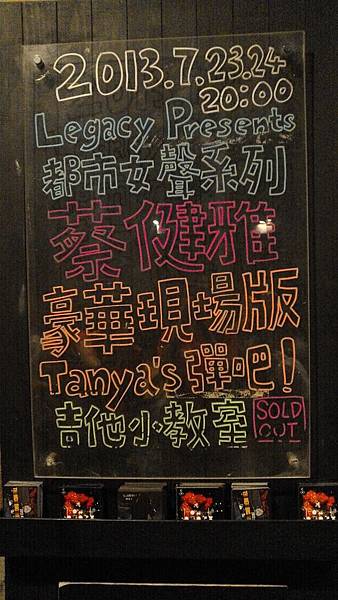 2013.7.23.24
20:00
Legacy Presents
都市女聲系列
蔡健雅
豪華現場版
Tanya's 彈吧!
吉他小教室 SOLD OUT